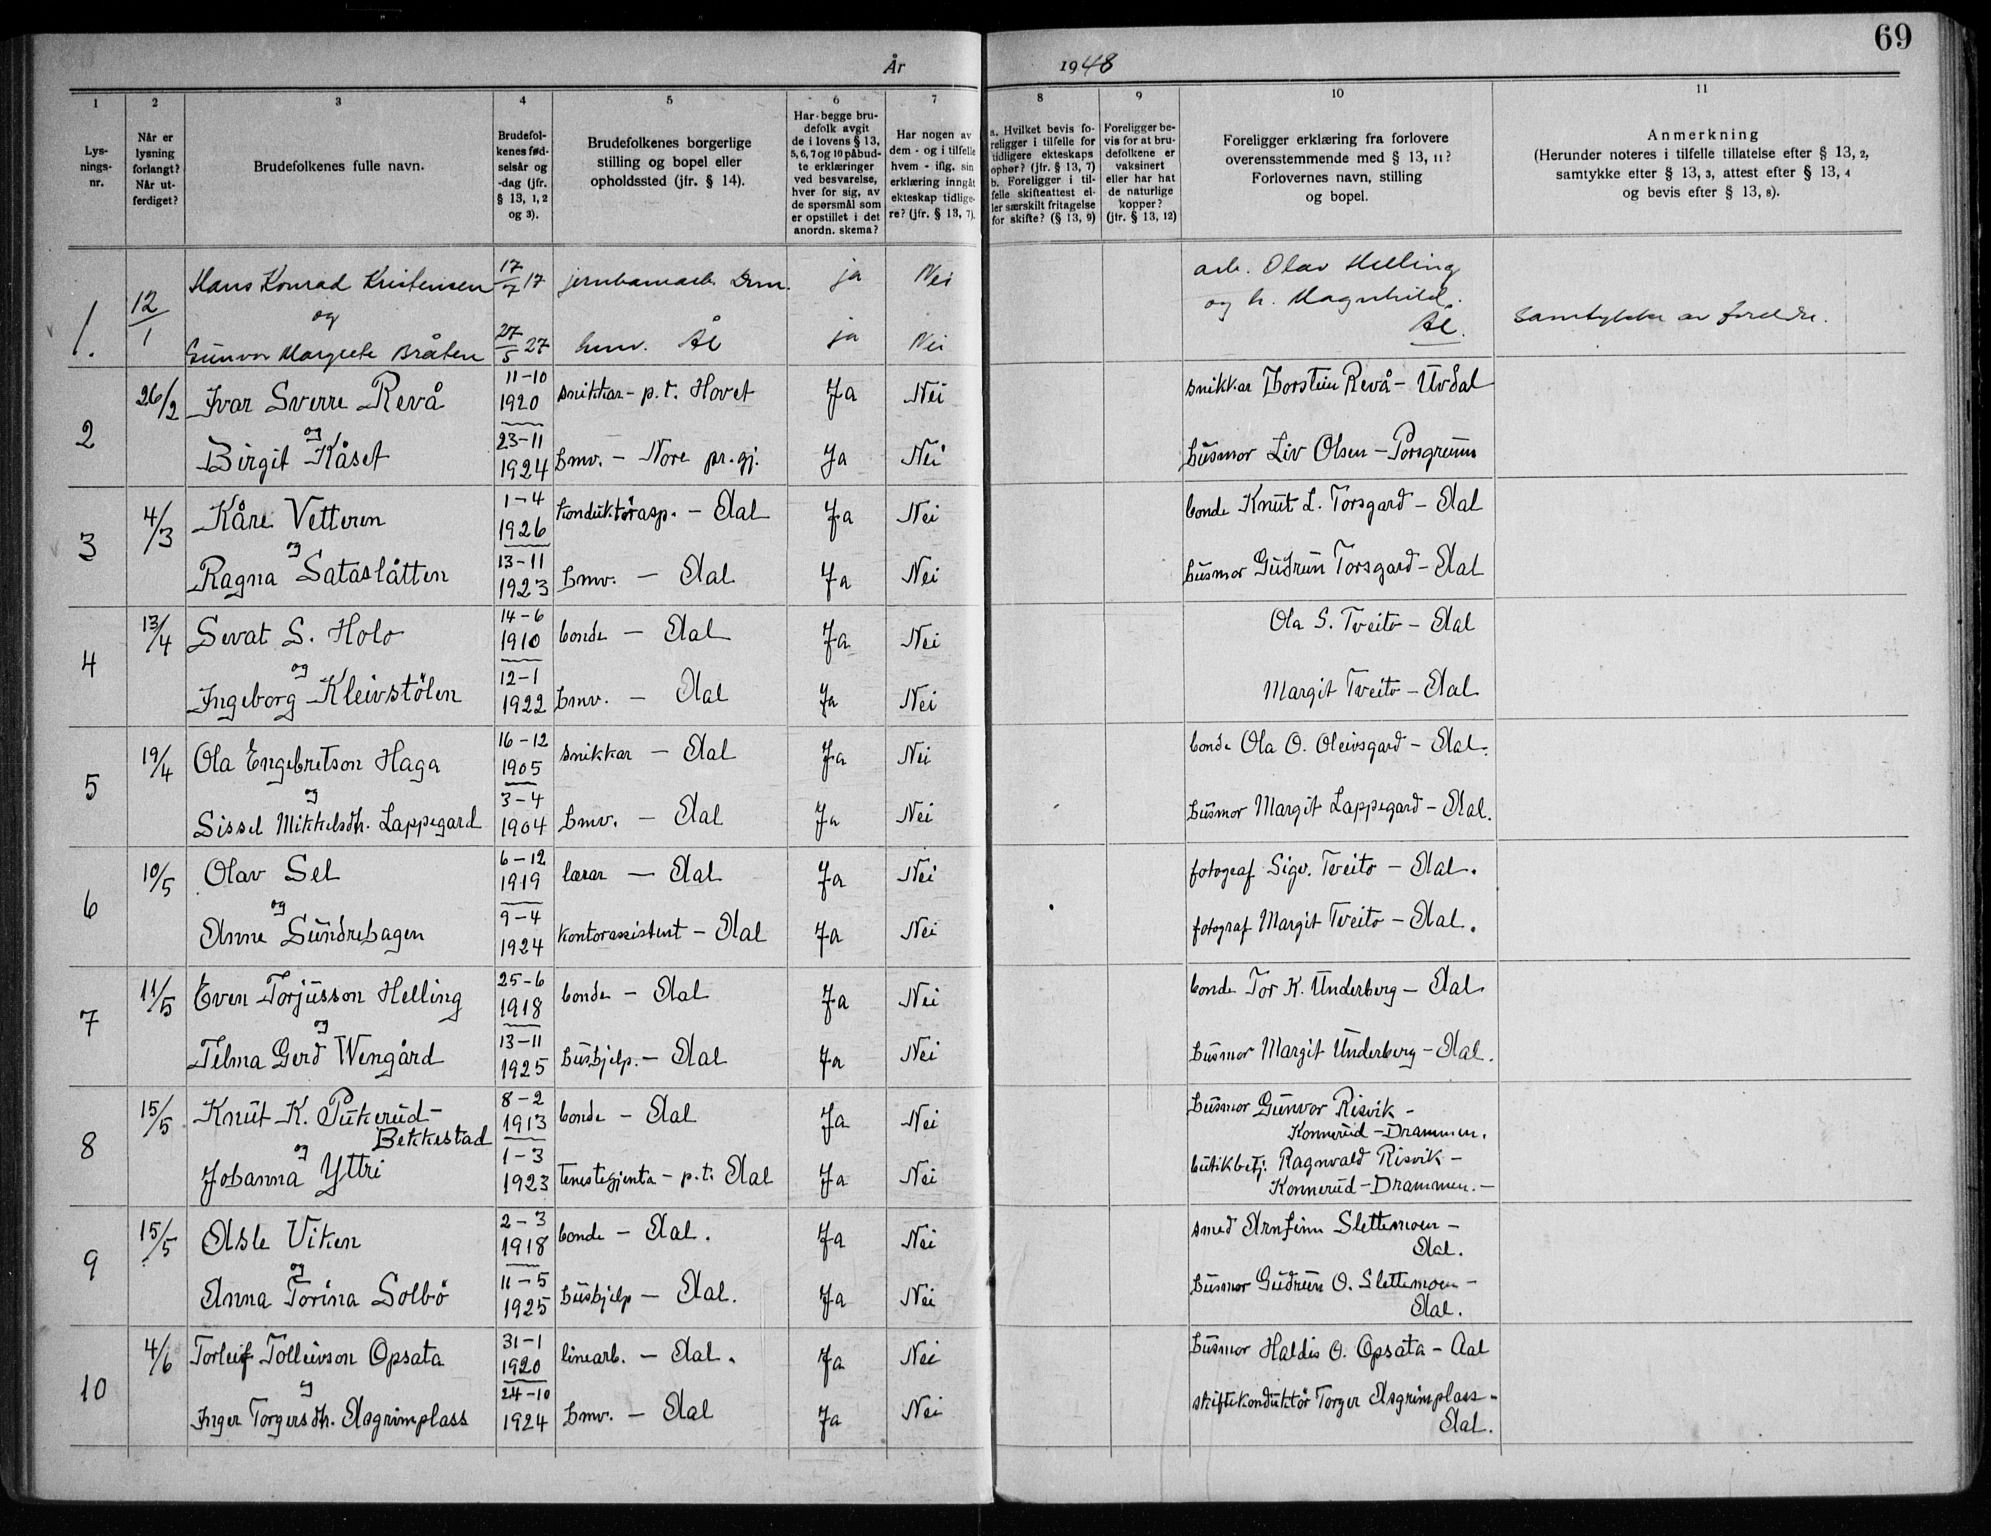 69
År 1948
1 2 3 4 5 6 7 8 9 10 11
Lys-
nings-
nr.
Når er
lysning
forlangt?
Når ut-
ferdiget?
Brudefolkenes fulle navn.
Brudefol-
kenes fød-
selsår og
-dag (jfr.
§ 13, 1, 2
og 3).
Brudefolkenes borgerlige
stilling og bopel eller
opholdssted (jfr. § 14).
Har begge bru-
defolk avgit
de i lovens § 13,
5, 6, 7 og 10 påbud-
te erklæringer
ved besvarelse,
hver for sig, av
de spørsmål som
er opstillet i det
anordn. skema?
Har nogen av
dem - og i tilfelle
hvem - iflg. sin
erklæring inngått
ekteskap tidlige-
re? (jfr. § 13, 7).
a. Hvilket bevis fo-
religger i tilfelle for
tidligere ekteskaps
ophør? (jfr. § 13, 7)
b. Foreligger i til-
felle skifteattest el-
ler særskilt fritagelse
for skifte? (§ 13, 9)
Foreligger be-
vis for at bru-
defolkene er
vaksinert
eller har hat
de naturlige
kopper?
(jfr. § 13, 12)
Foreligger erklæring fra forlovere
overensstemmende med § 13, 11?
Forlovernes navn, stilling
og bopel.
Anmerkning
(Herunder noteres i tilfelle tillatelse efter § 13, 2,
samtykke efter § 13, 3, attest efter § 13, 4
og bevis efter § 13, 8).
1. 12/1 Hans Konrad Kristensen 17/7 17 jernbanearb. Drm. ja Nei arb. Olav Helling
og og h. Magnhild.
Ål. Samtykke av foreldre.
Gunvor Margrete Bråten 27/5 27 hmv. Ål ja Nei
2 26/2 Ivar Sverre Revå 11-10 1920 snikkar - p.t. Hovet Ja Nei snikkar Thorstein Revå - Uvdal
og
Birgit Kåset 23-11 1924 hmv. - Nore pr.gj. Ja Nei husmor Liv Olsen - Porsgrunn
3 4/3 Kåre Vetteren 1-4 1926 konduktörasp. - Aal Ja Nei bonde Knut L. Torsgard - Aal
og
Ragna Sataslåtten 13-11 1923 hmv. - Aal Ja Nei husmor Gudrun Torsgard - Aal
4 13/4 Sevat S. Holo 14-6 1910 bonde - Aal Ja Nei Ola S. Tveito - Aal
og
Ingeborg Kleivstölen 12-1 1922 hmv. - Aal Ja Nei Margit Tveito - Aal
5 19/4 Ola Engebretson Haga 16-12 1905 snikkar - Aal Ja Nei bonde Ola O. Oleivsgard - Aal.
og
Sissel Mikkelsdtr. Lappegard 3-4 1904 hmv. - Aal Ja Nei husmor Margit Lappegard - Aal.
6 10/5 Olav Sel 6-12 1919 lærar - Aal Ja Nei fotograf Sigv. Tveito - Aal.
og
Anne Sundrehagen 9-4 1924 kontorassistent - Aal Ja Nei fotograf Margit Tveito - Aal.
7 11/5 Even Torjusson Helling 25-6 1918 bonde - Aal Ja Nei bonde Tor K. Underberg - Aal
og
Telma Gerd Wengård 13-11 1925 hushjelp. - Aal Ja Nei husmor Margit Underberg - Aal.
8 15/5 Knut K. Pukerud- 8-2 1913 bonde - Aal Ja Nei husmor Gunvor Risvik -
Bekkestad Konnerud - Drammen.
og
Johanna Yttri 1-3 1923 tenestegjenta - p.t. Aal Ja Nei butikbetj. Ragnvald Risvik -
Konnerud - Drammen. -
9 15/5 Asle Viken 2-3 1918 bonde - Aal. Ja Nei smed Arnfinn Slettemoen -
Aal.
og
Anna Torina Solbö 11-5 1925 hushjelp - Aal. Ja Nei husmor Gudrun O. Slettemoen -
Aal.
10 4/6 Torleif Tolleivson Opsata 31-1 1920 linearb. - Aal. Ja Nei husmor Haldis O. Opsata - Aal
og
Inger Torgersdtr. Asgrimplass 24-10 1924 hmv. - Aal Ja Nei skiftekonduktör Torger Asgrimplass -
Aal.